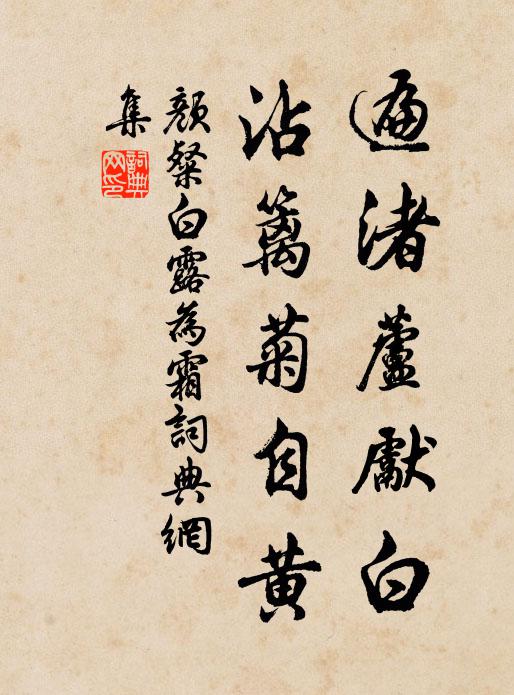 遍渚蘆獻白
沾篱菊自黃
顏粲白露為霜詞典網
集
詞典
网印